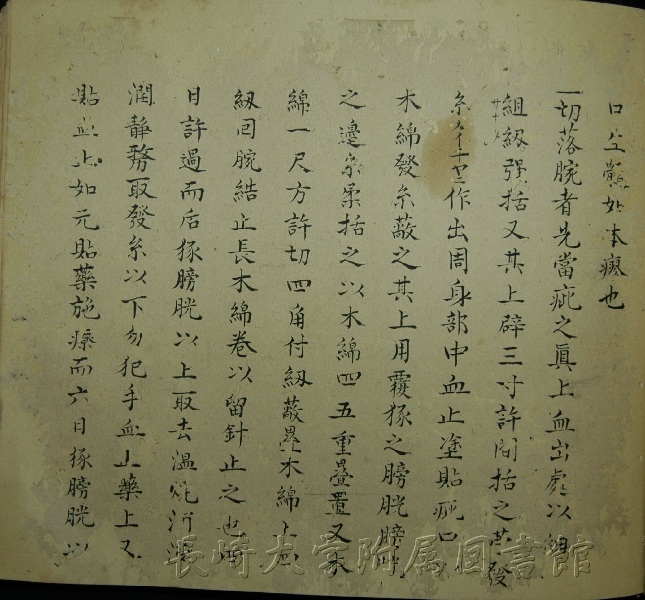 口生
一切落腕者先當疵之眞上血出處以細
組紐强括又其上辟三寸許間括之其發
糸 作出周身部中血止塗貼疵口
木綿發糸蔽之其上用覆豚之膀胱膀
之邊糸柔括之以木綿四五重疊置又木
綿一尺方許切四角付紐蔽疊木綿上
紐回腕結止長木綿卷以留針止之也
日許過而后豚膀胱以上取去温
潤靜務取發糸以下勿犯手血止藥上又
貼血止如元貼藥施療而六日豚膀胱以
長崎大学附属図書館